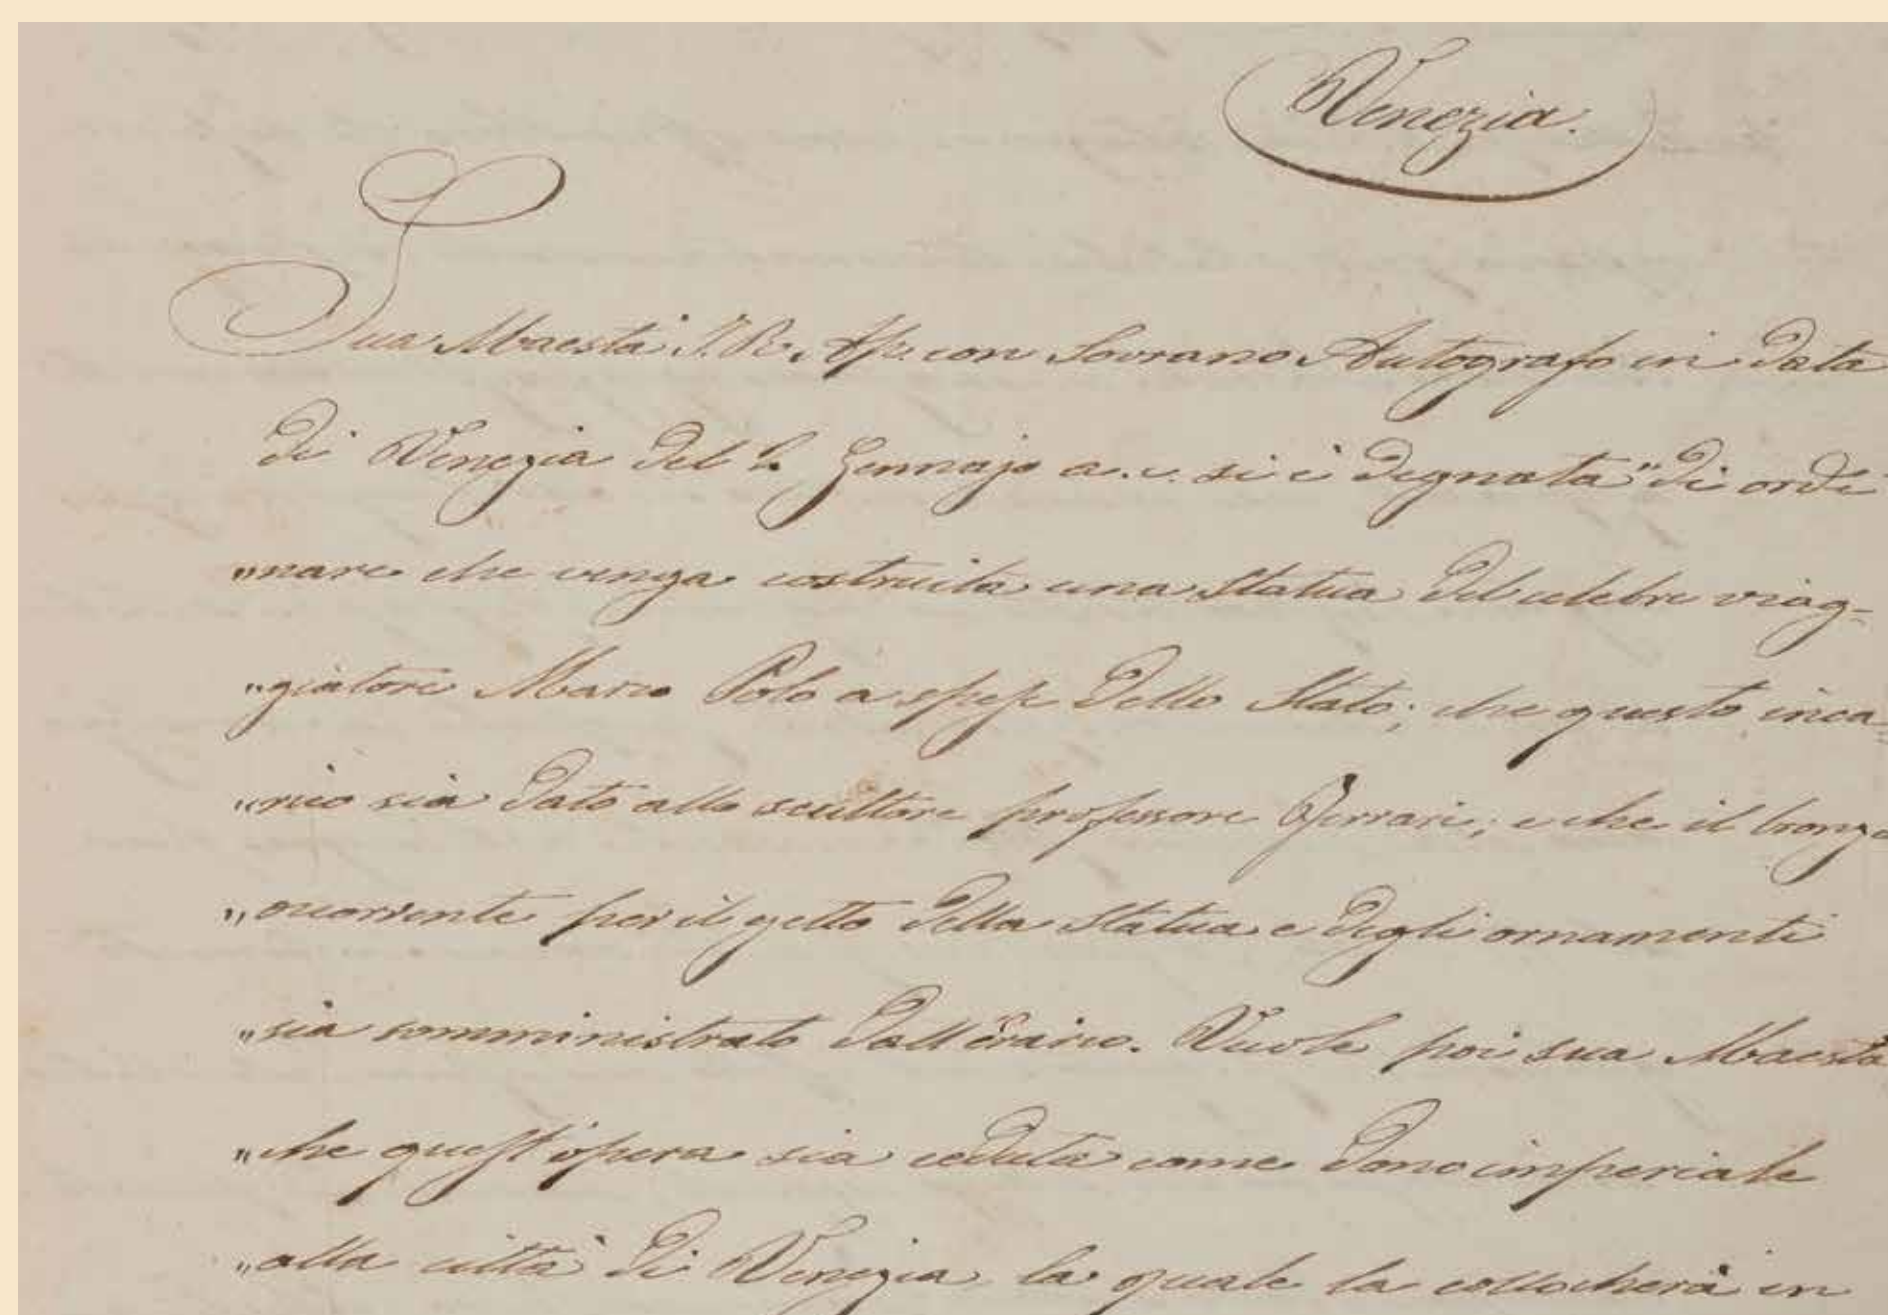 Venezia.
Sua Maestà I. R. Ap. con Sovrano Autografo in data
di Venezia del Gennajo a. c. si è degnata "di ordi
"nare che venga costruita una statua del celebre viag=
"giatore Marco Polo a spese dello Stato; che questo inca=
"rico sia dato allo scultore professore Ferrari; e che il bronzo
"occorrente per il getto della statua e degli ornamenti
"sia somministrato dall'erario. Vuole poi sua Maestà
"che quest'opera sia ceduta come dono imperiale
"alla città di Venezia la quale la collocherà in